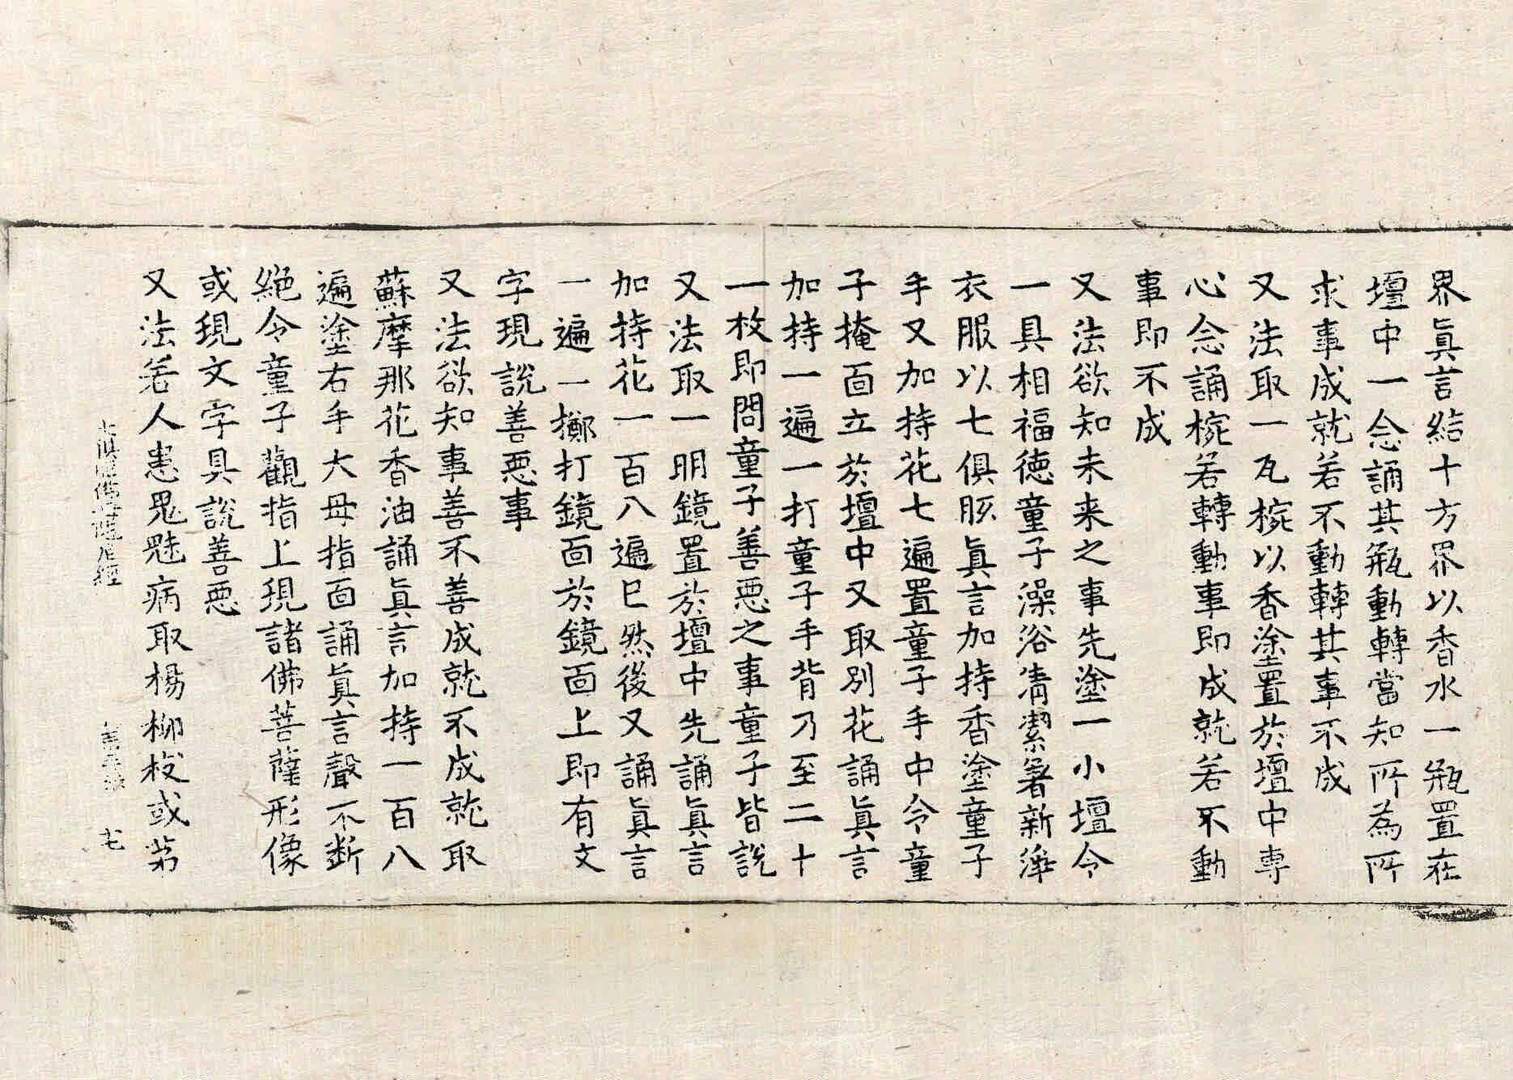 界眞言結十方界以香水一瓶置在
壇中一念誦其瓶動轉當知所為所
求事成就若不動轉其事不成
又法取一瓦椀以香塗置於壇中專
心念誦椀若轉動事即成就若不動
事即不成
又法欲知未来之事先塗一小壇令
一具相福徳童子澡浴清潔著新淨
衣服以七俱胝眞言加持香塗童子
手又加持花七遍置童子手中令童
子掩面立於壇中又取別花誦眞言
加持一遍一打童子手背乃至二十
一枚即問童子善惡之事童子皆說
又法取一明鏡置於壇中先誦眞言
加持花一百八遍已然後又誦眞言
一遍一擲打鏡面於鏡面上即有文
字現說善惡事
又法欲知事善不善成就不成就取
蘇摩那花香油誦眞言加持一百八
遍塗右手大母指面誦眞言聲不断
絕令童子觀指上現諸佛菩薩形像
或現文字具說善惡
又法若人患鬼魅病取楊柳枝或茅